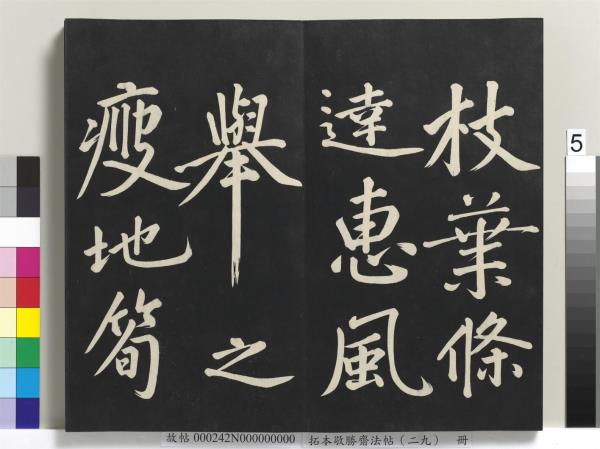 枝葉條
達惠風
舉之
瘦地筍
5
故帖 000242N000000000 拓本敬勝齋法帖（二九） 冊